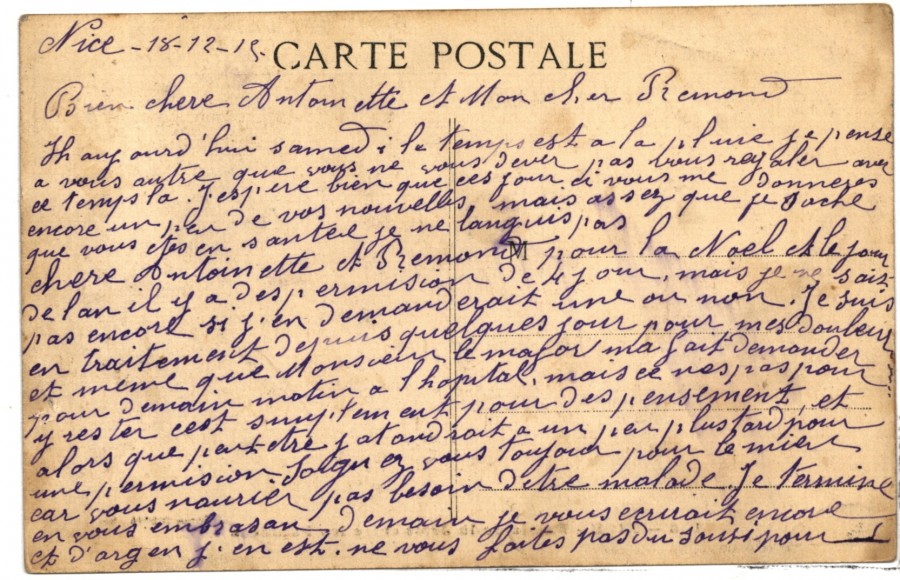 Nice - 18-12-15.
CARTE POSTALE
Bien chere Antoinette et Mon cher Remond
Ih aujourd'hui samedi le temps est a la pluie je pense
a vous autre que vous ne vous dever pas vous regaler avec
ce temps la. J'espere bien que ces jour ci vous me donneres
encore un peu de vos nouvelles, mais assez que je sache
que vous etes en santee je ne languis pas
chere Antoinette et Remond pour la Noel et le jour
M
de lan il y a des permision de 4 jour, mais je ne sait
pas encore si j'en demanderait une ou non. Je suis
en traitement depuis quelques jour pour mes douleur
et même que Monsieur le major ma fait demander
pour demain matin a l'hopital, mais ce nes pas pour
y rester cest simplement pour des pensement, et
alors que peut etre j atandrait a un peu plus tard pour
une permision Soigner vous toujour pour le mieu
car vous naurier pas besoin detre malade. Je termine
en vous embrasan demain je vous ecrirait encore
et d'argen j'en est. ne vous faites pas du sousi pour